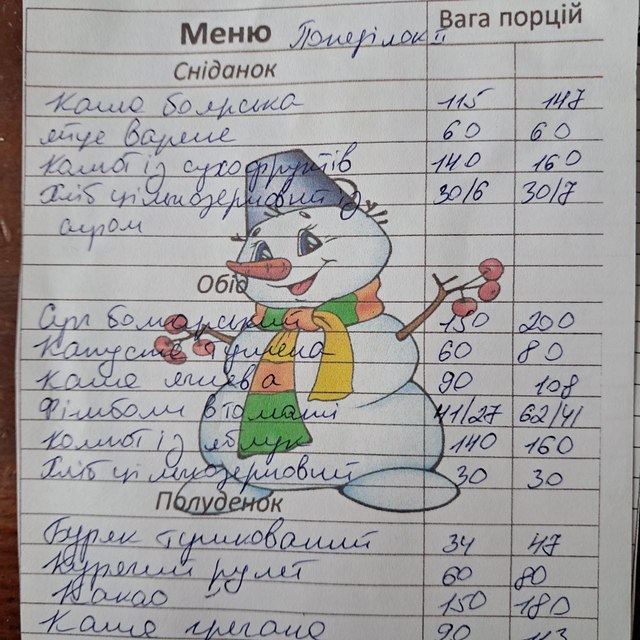 Меню Понеділок II Вага порцій
Сніданок
Каша боярська 115 147
яйце варене 60 60
Компот із сухофруктів 140 160
Хліб цільнозерновий із 30/6 30/7
сиром
Обід
Суп болгарський 150 200
Капуста тушена 60 80
Каша ячнева 90 108
Фішболи в томаті 41/27 62/41
Компот із яблук 140 160
Хліб цільнозерновий 30 30
Полуденок
Буряк тушкований 34 47
Курячий рулет 60 80
Какао 150 180
Каша гречана 90 113